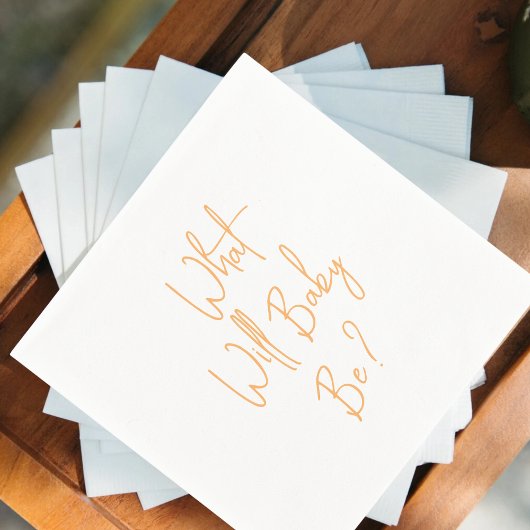 What
Will Baby
Be?